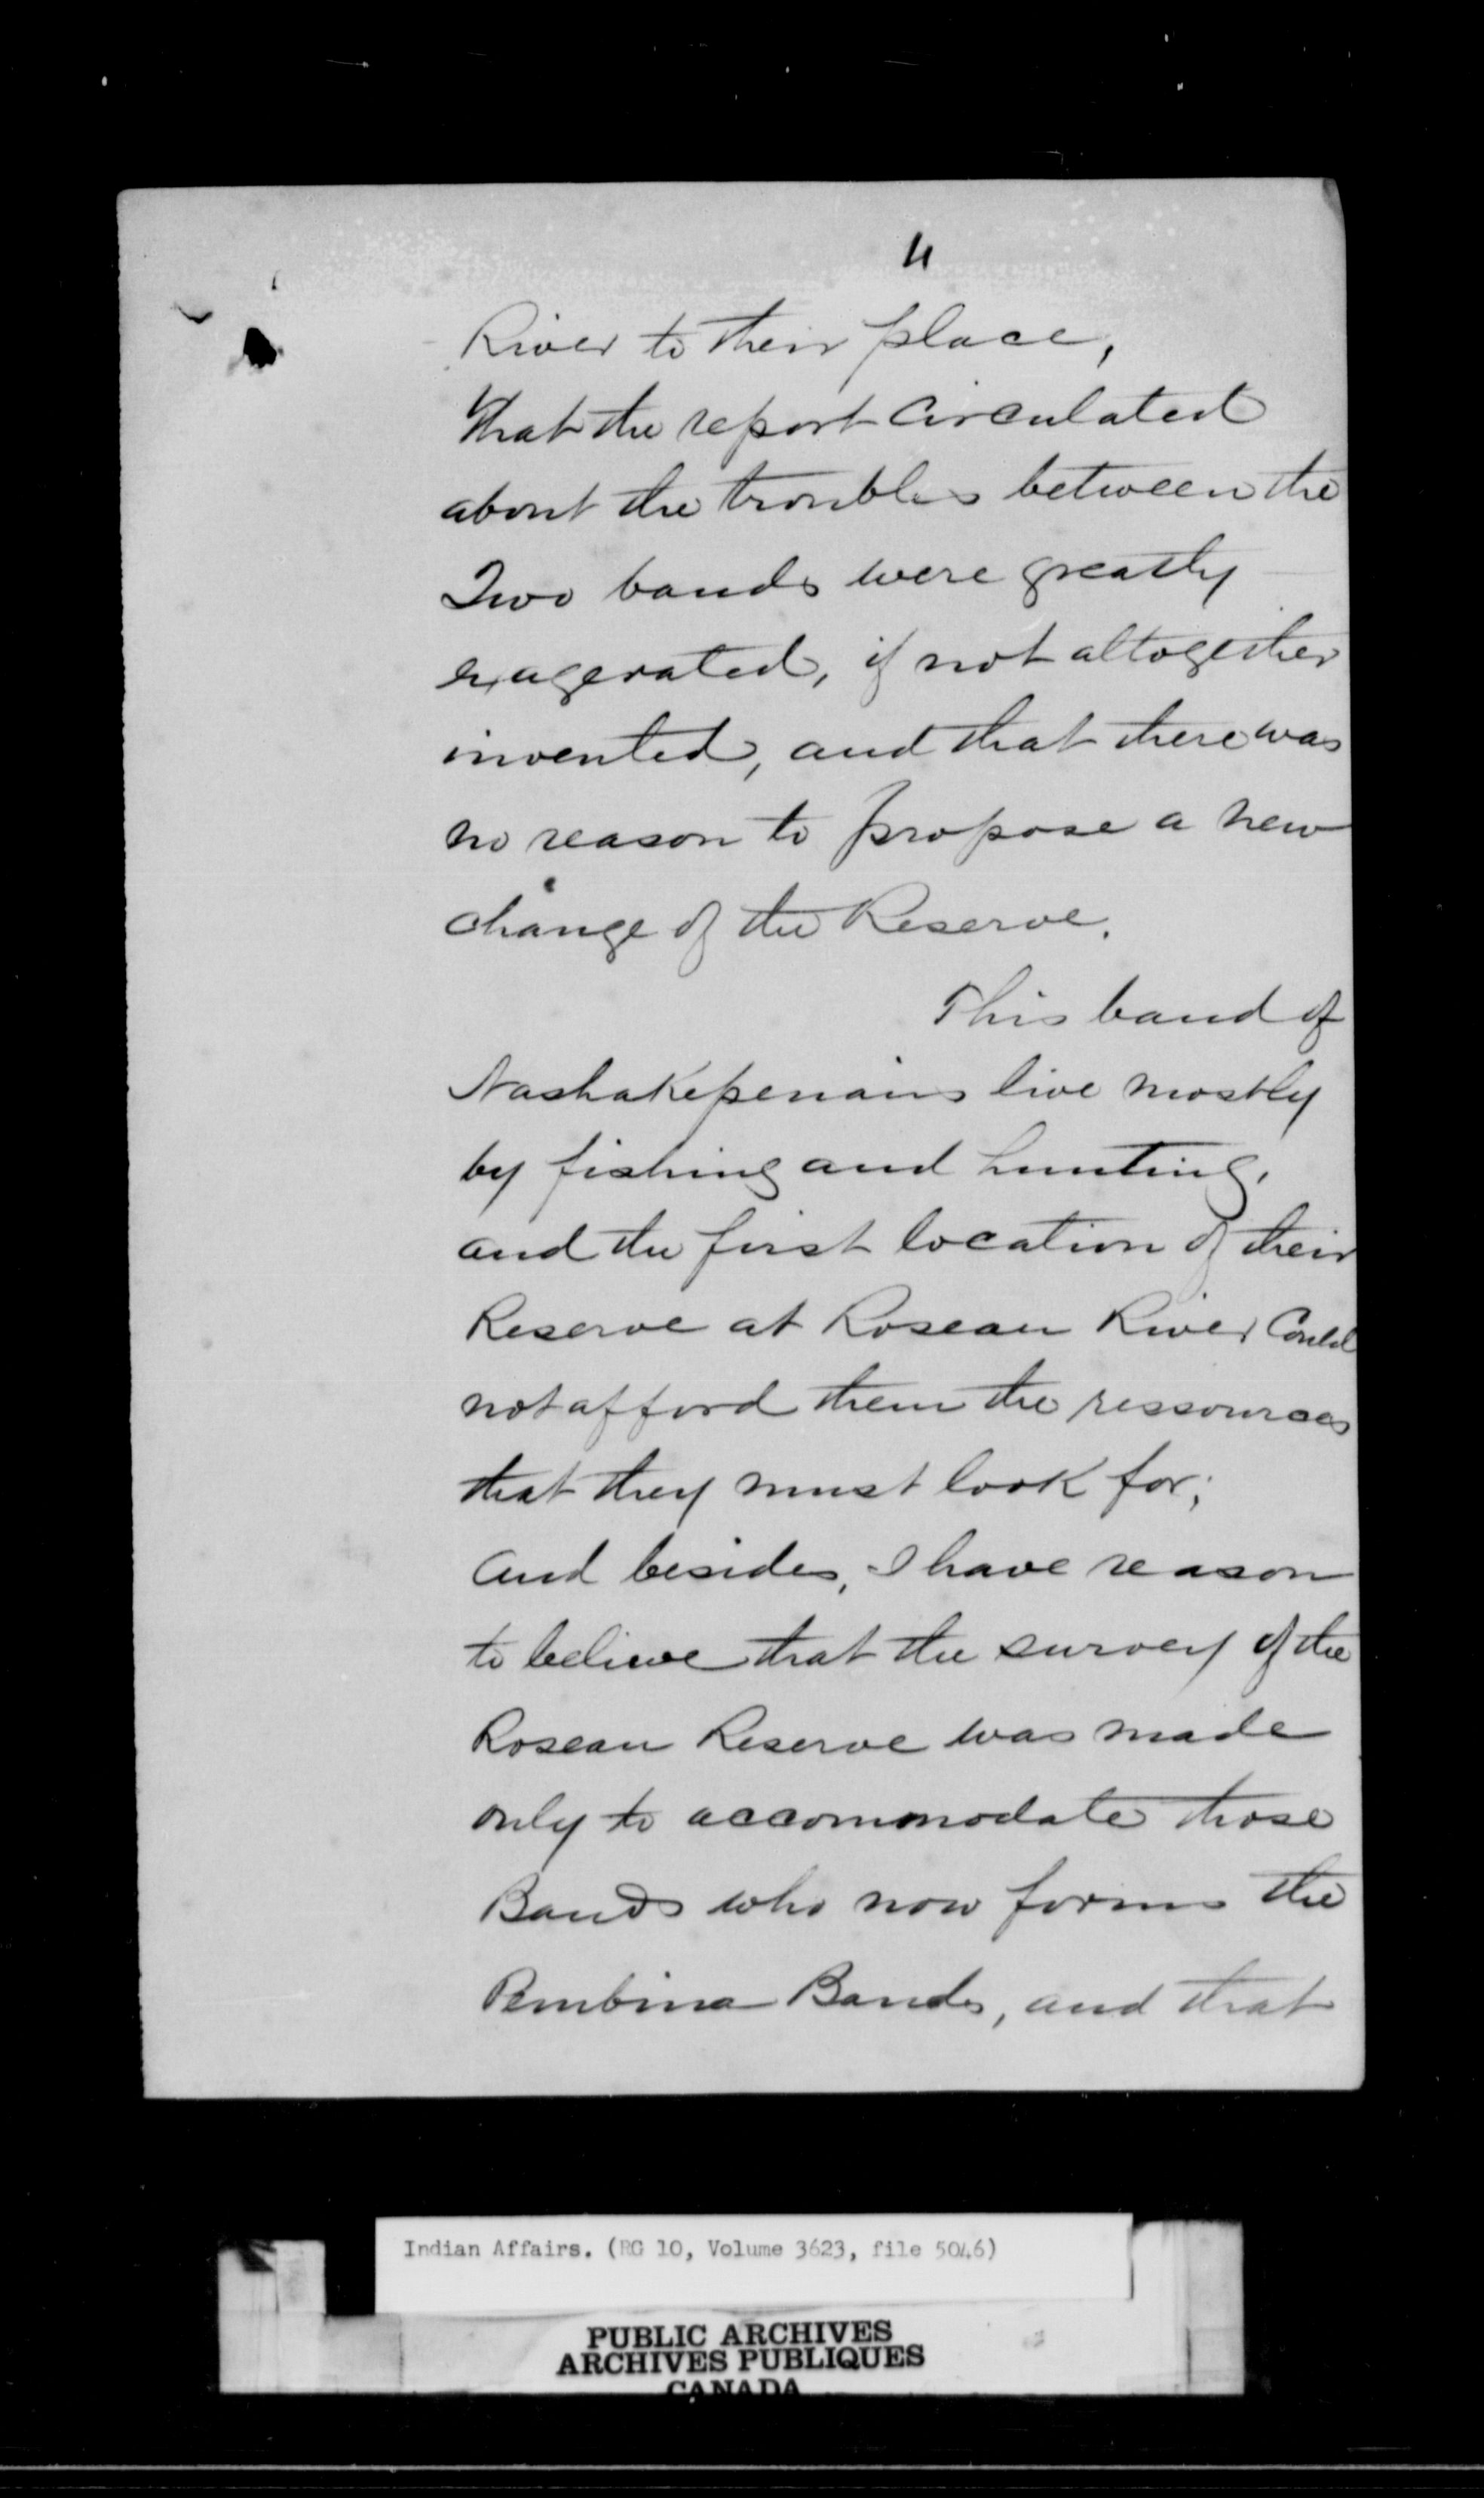 4
River to their place,
that the report circulated
about the troubles between the
Two bands were greatly
exagerated, if not altogether
invented, and that there was
no reason to propose a new
change of the Reserve.
This band of
Nashakepenais live mostly
by fishing and hunting,
and the first location of their
Reserve at Roseau River Could
not afford them the ressources
that they must look for;
and besides, I have reason
to believe that the survey of the
Roseau Reserve was made
only to accommodate those
Bands who now forms the
Pembina Bands, and that
Indian Affairs. (RG 10, Volume 3623, file 5046)
PUBLIC ARCHIVES
ARCHIVES PUBLIQUES
CANADA